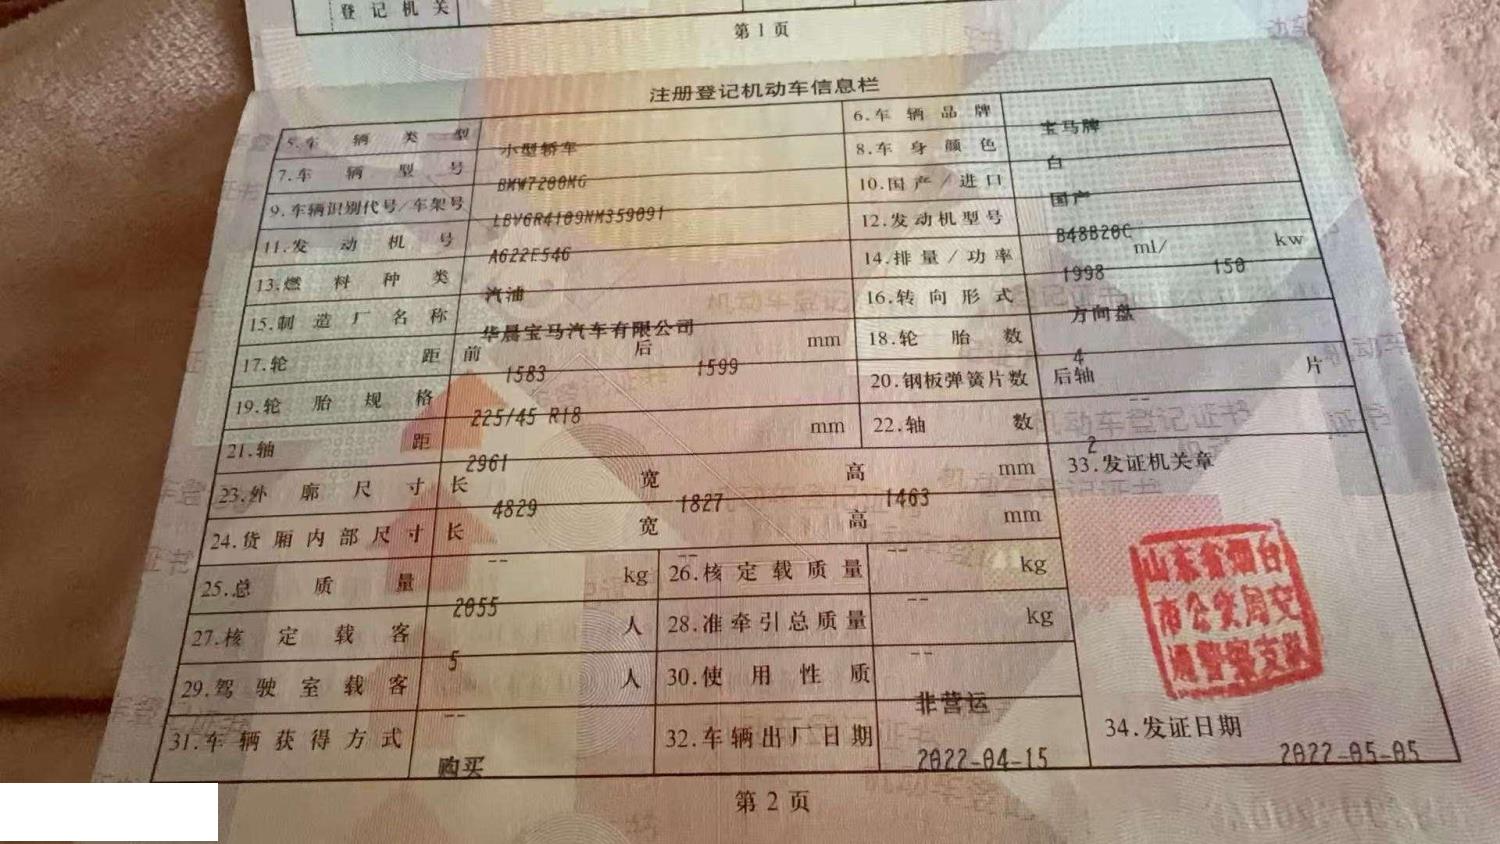 登记机关
第1页
注册登记机动车信息栏
5.车辆类型 小型轿车 6.车辆品牌 宝马牌
7.车辆型号 BMW7200MG 8.车身颜色 白
9.车辆识别代号/车架号 LBV6R4109NM359091 10.国产/进口 国产
11.发动机号 A622E546 12.发动机型号 B48B20C
13.燃料种类 汽油 14.排量/功率 1998 ml/ 150 kw
15.制造厂名称 华晨宝马汽车有限公司 16.转向形式 方向盘
17.轮距 前 1583 后 1599 mm 18.轮胎数 4
19.轮胎规格 225/45 R18 20.钢板弹簧片数 后轴 -- 片
21.轴距 2961 mm 22.轴数 2
23.外廓尺寸 长 4829 宽 1827 高 1463 mm 33.发证机关章
24.货厢内部尺寸 长 -- 宽 -- 高 -- mm
25.总质量 2055 kg 26.核定载质量 -- kg
27.核定载客 5 人 28.准牵引总质量 -- kg
29.驾驶室载客 -- 人 30.使用性质 非营运
31.车辆获得方式 购买 32.车辆出厂日期 2022-04-15 34.发证日期 2022-05-05
山东省烟台
市公安局交
通警察支队
第2页